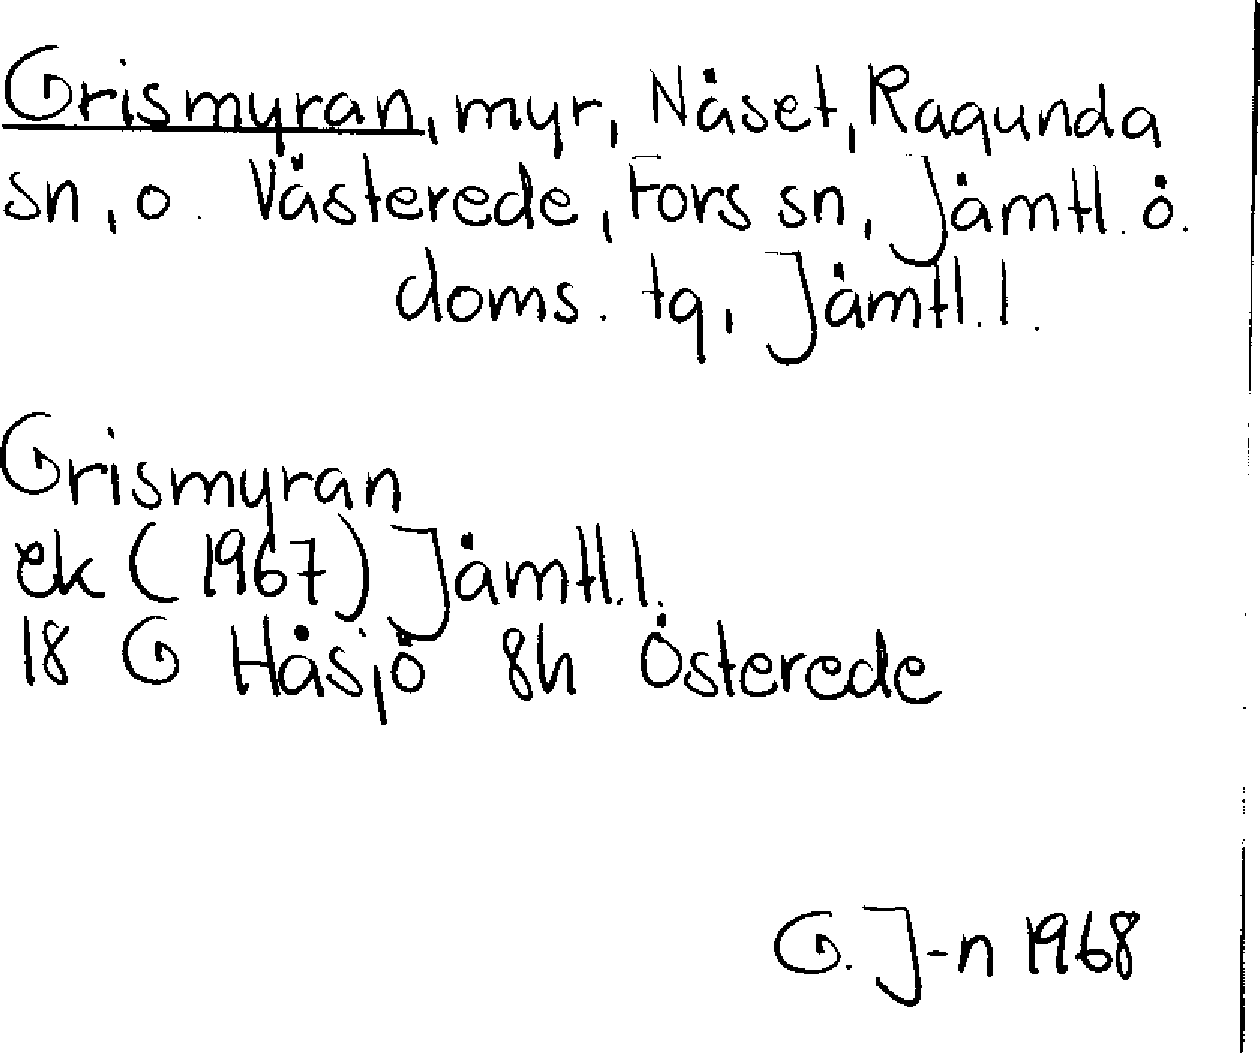 Grismyran, myr, Näset, Ragunda
sn, o. Västerede, Fors sn, Jämtl. ö.
doms. tg, Jämtl. l.
Grismyran
ek (1967) Jämtl. l.
18 G Håsjö 8h Österede
G. J-n 1968